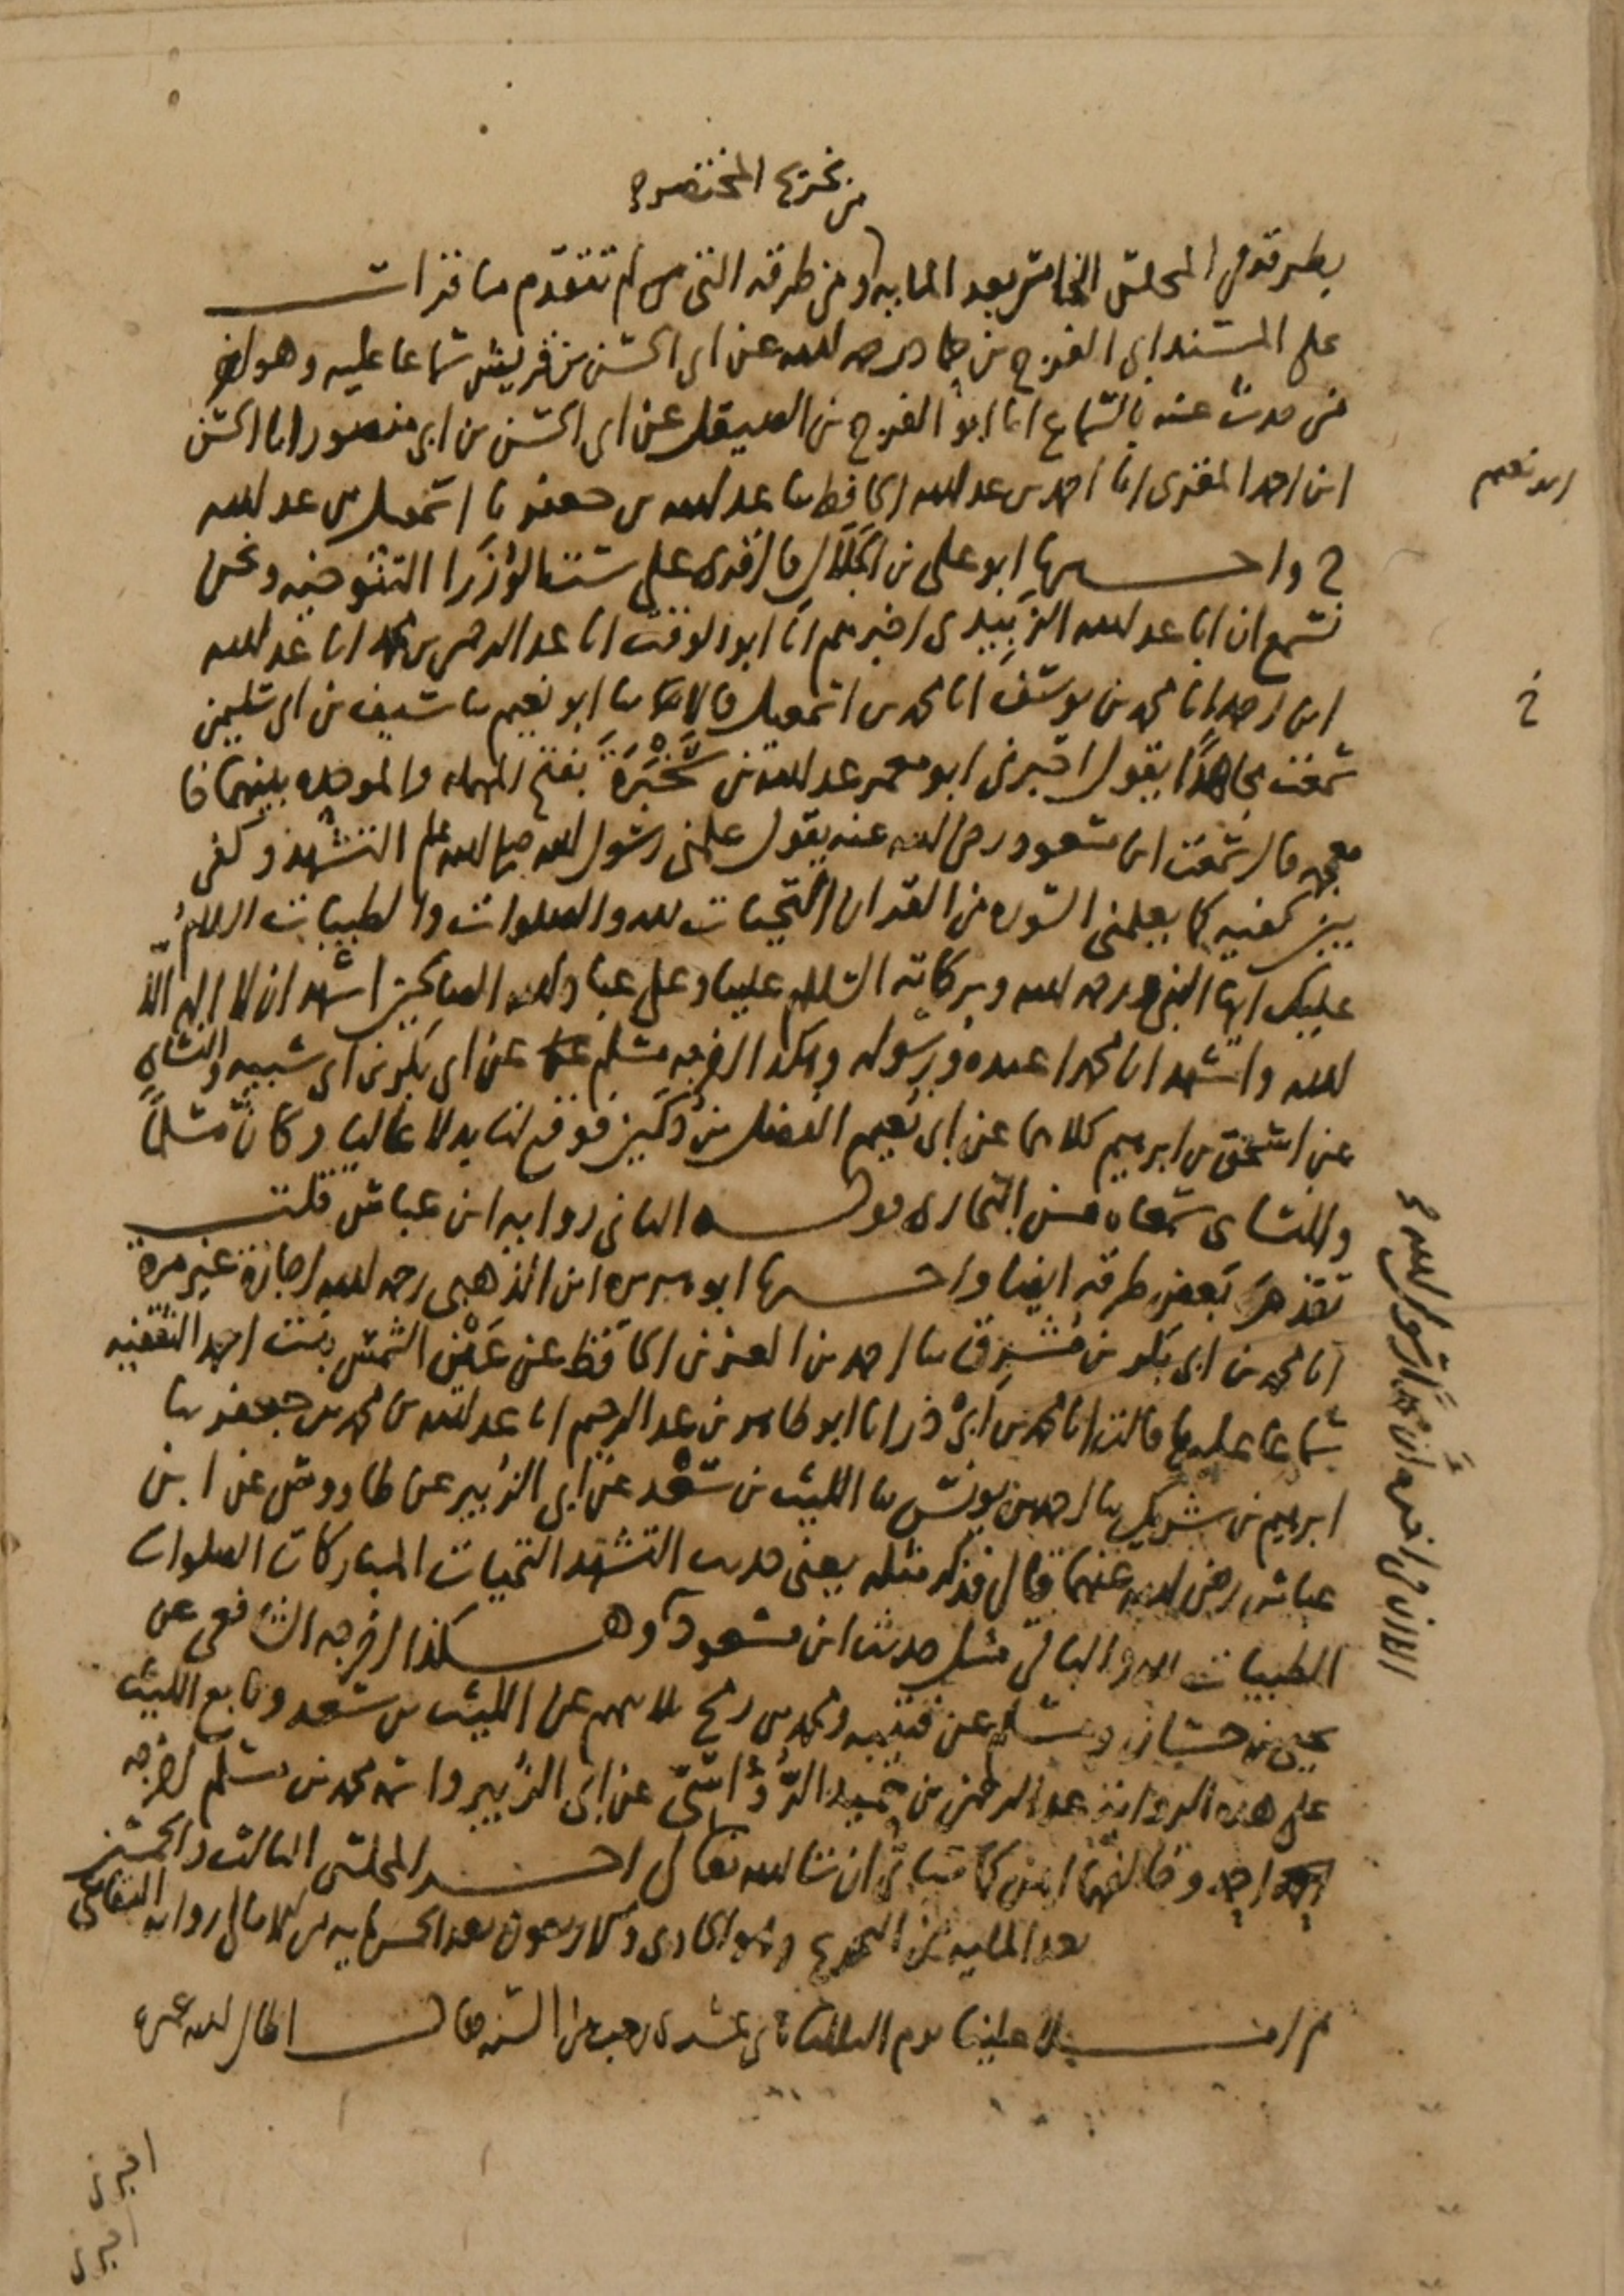 من تخريج المختصر
بطرقه في المجلس الخامس بعد المايه ومن طرقه التي لم تتقدم ما قرات
على المسند ابي الفرج بن حماد رحمه الله عن ابي الحسن بن قريش سماعا عليه وهو اخر
من حدث عنه بالسماع انا ابو الفرج بن الصيقل عن ابي الحسن بن ابي منصور انا الحسن
ابن احمد المقرى انا احمد بن عبد الله الحافظ ثنا عبد الله بن جعفر ثنا اسمعيل بن عبد الله
ح واخبرنا ابو علي بن الجلال قال قرى على ست الوزرا التنوخيه ونحن
نسمع ان ابا عبد الله الزبيدي اخبرهم انا ابو الوقت انا عبد الرحمن بن محمد انا عبد الله
ابن احمد انا محمد بن يوسف انا محمد بن اسمعيل قالا ثنا ابو نعيم ثنا سيف بن ابي سليمن
سمعت مجاهدا يقول اخبرني ابو معمر عبد الله بن سَخْبَرَة بفتح المهمله والموحده بينهما خا
معجمه قال سمعت ابن مسعود رضي الله عنه يقول علمني رسول الله صلى الله عليه وسلم التشهد وكفي
بين كفيه كما يعلمني السوره من القران التحيات لله والصلوات والطيبات السلام
عليك ايها النبي ورحمه الله وبركاته السلام علينا وعلى عباد الله الصالحين اشهد ان لا اله الا
الله واشهد ان محمدا عبده ورسوله وهكذا اخرجه مسلم عن ابي بكر بن ابي شيبه والنساي
عن اسحق بن ابرهيم كلاهما عن ابي نعيم الفضل بن دكين فوقع لنا بدلا عاليا وكان مسلما
والنساى سمعاه من البخارى قوله الثاني روايه ابن عباس قلت
تقدم بعض طرقه ايضا واخبرنا ابو هريره ابن الذهبي رحمه الله اجازة غير مرة
انا محمد بن ابي بكر بن مشرق ثنا احمد بن العز بن الحافظ عن عين الشمس بنت احمد الثقفيه
سماعا عليها قالت انا محمد بن ابي ذر انا ابو طاهر بن عبد الرحيم انا عبد الله بن محمد بن جعفر ثنا
ابرهيم بن شريك ثنا احمد بن يونس ثنا الليث بن سعد عن ابي الزبير عن طاووس عن ابن
عباس رضي الله عنهما قال فذكر مثله يعني حديث التشهد التحيات المباركات الصلوات
الطيبات لله والباقي مثل حديث ابن مسعود وهكذا اخرجه الشافعي عن
يحيى بن حسان ومسلم عن قتيبه ومحمد بن رمح ثلاثتهم عن الليث بن سعد وتابع الليث
على هذه الروايه عبد الرحمن بن حميد الرؤاسي عن ابي الزبير واخرجه مسلم
احمد وخالفهما ايمن كما سياتي ان شا الله تعالى اخر المجلس الثالث والخمسين
بعد المايه من التخريج وهو الحادي والاربعون بعد الخمس مايه من الامالي روايه البقاعي
ثم املا علينا يوم الثلاثا ثاني عشرى رجب من السنه قال اطال الله عمره
ابو نعيم
خ
الاذان اخره ان محمدا رسول الله
اخبرني
اخبرني